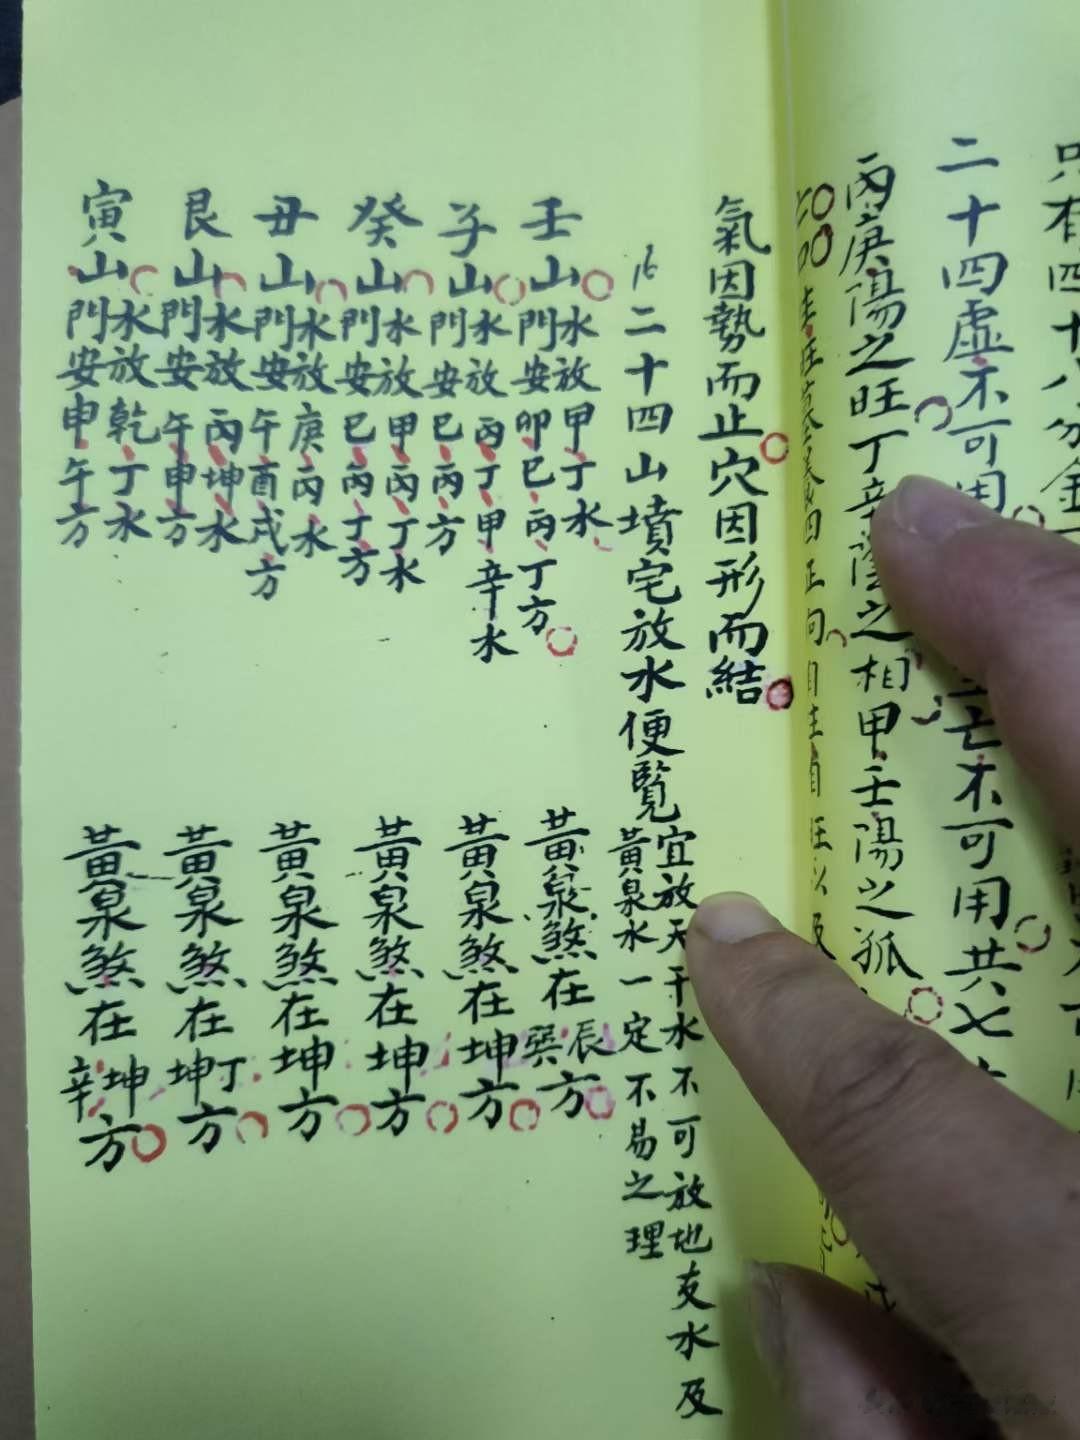 只有四十八分金
二十四虛不可用
空亡不可用共七
丙庚陽之旺丁辛陰之相甲壬陽之孤
四正向
氣因勢而止穴因形而結
二十四山墳宅放水便覽
宜放天干水不可放地支水及
黃泉水一定不易之理
壬山
水放甲丁水
門安卯巳丙丁方
黃泉煞在辰巽方
子山
水放丙丁甲辛水
門安巳丙方
黃泉煞在坤方
癸山
水放甲丙丁水
門安巳丙丁方
黃泉煞在坤方
丑山
水放庚丙水
門安午酉戌方
黃泉煞在坤方
艮山
水放丙坤水
門安午申方
黃泉煞在丁坤方
寅山
水放乾丁水
門安申午方
黃泉煞在坤辛方